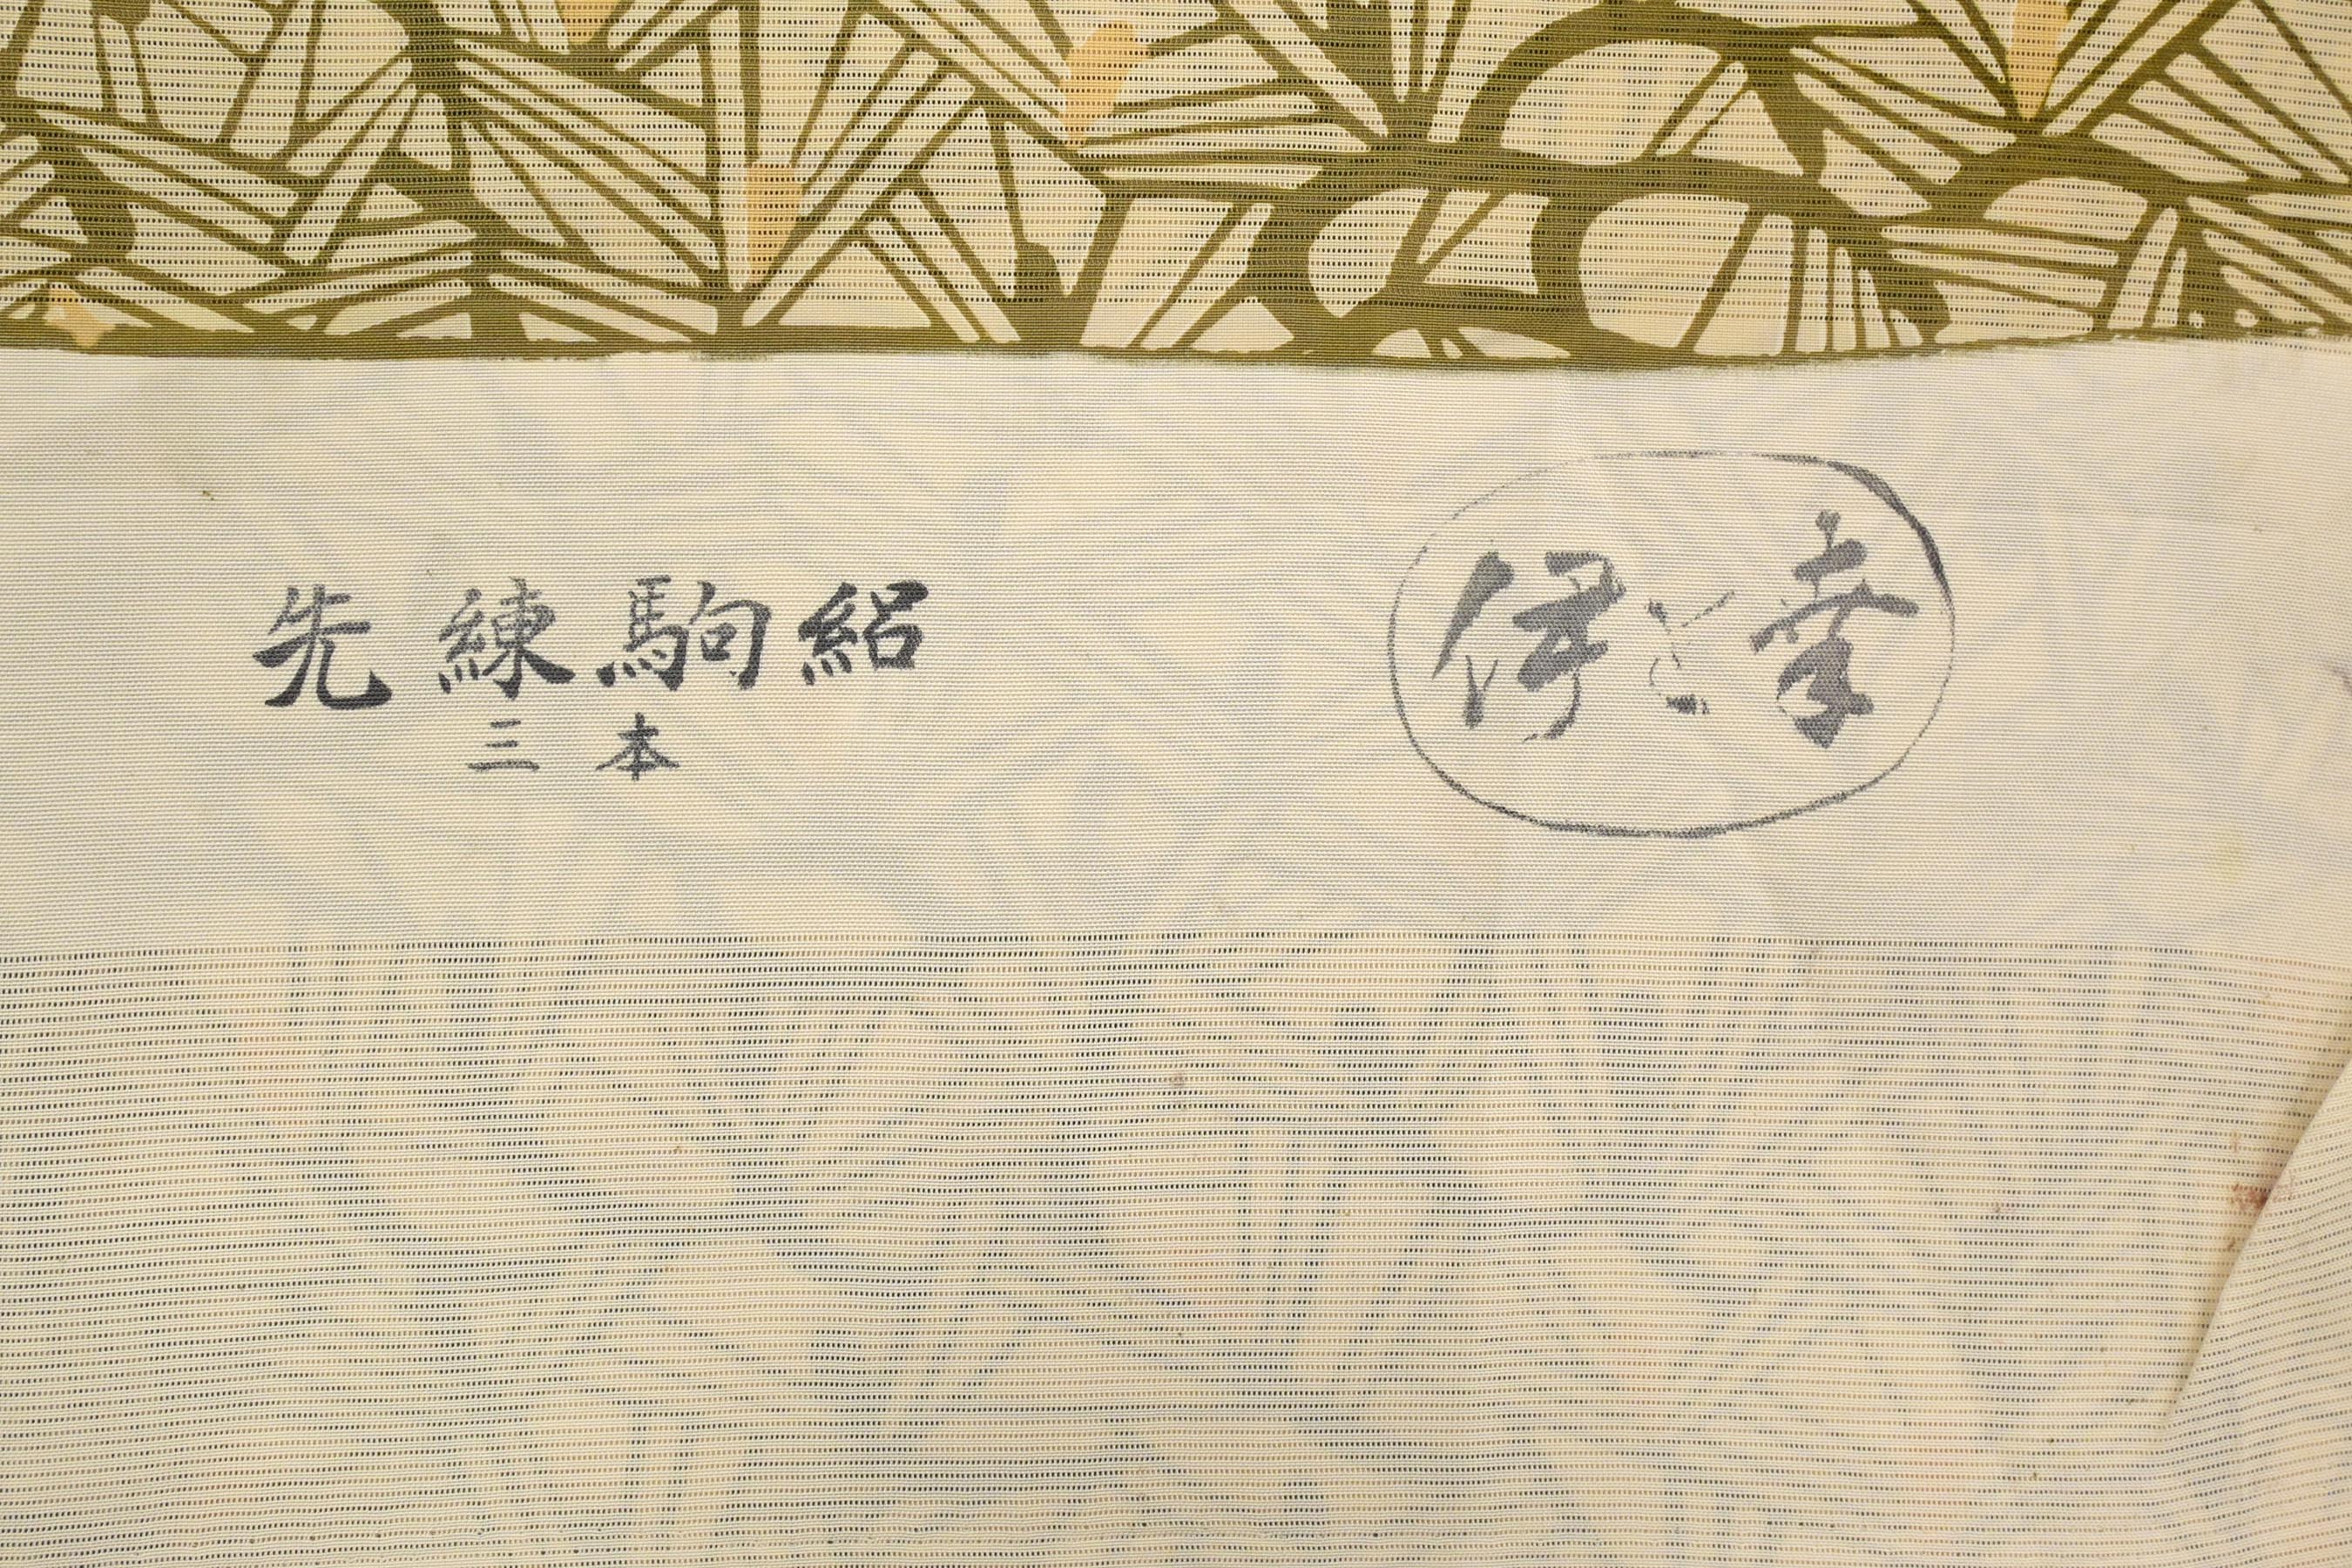 先練駒絽
三本
伊と幸